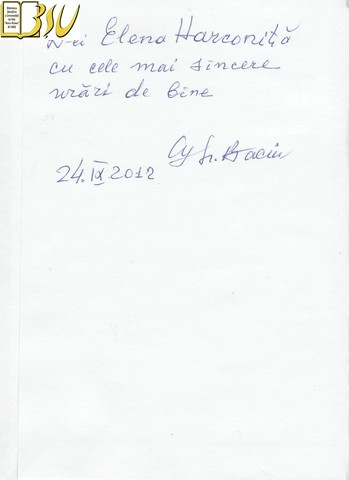 BSU
D-ei Elena Harconiță
cu cele mai sincere
urări de bine
24.IX 2012